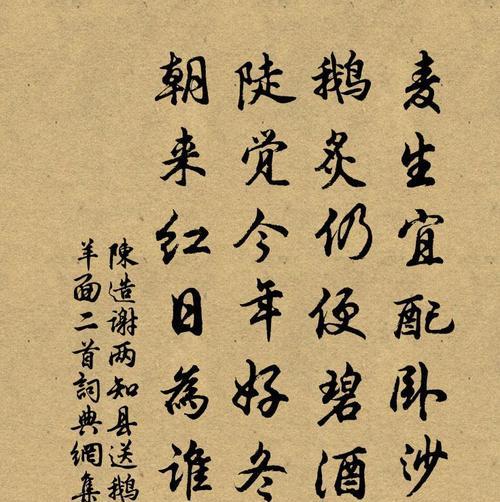 麦生宜配卧沙
鹅炙仍便碧酒
陡觉今年好冬
朝来红日為谁
陳造谢两知县送鹅
羊面二首詞典網集